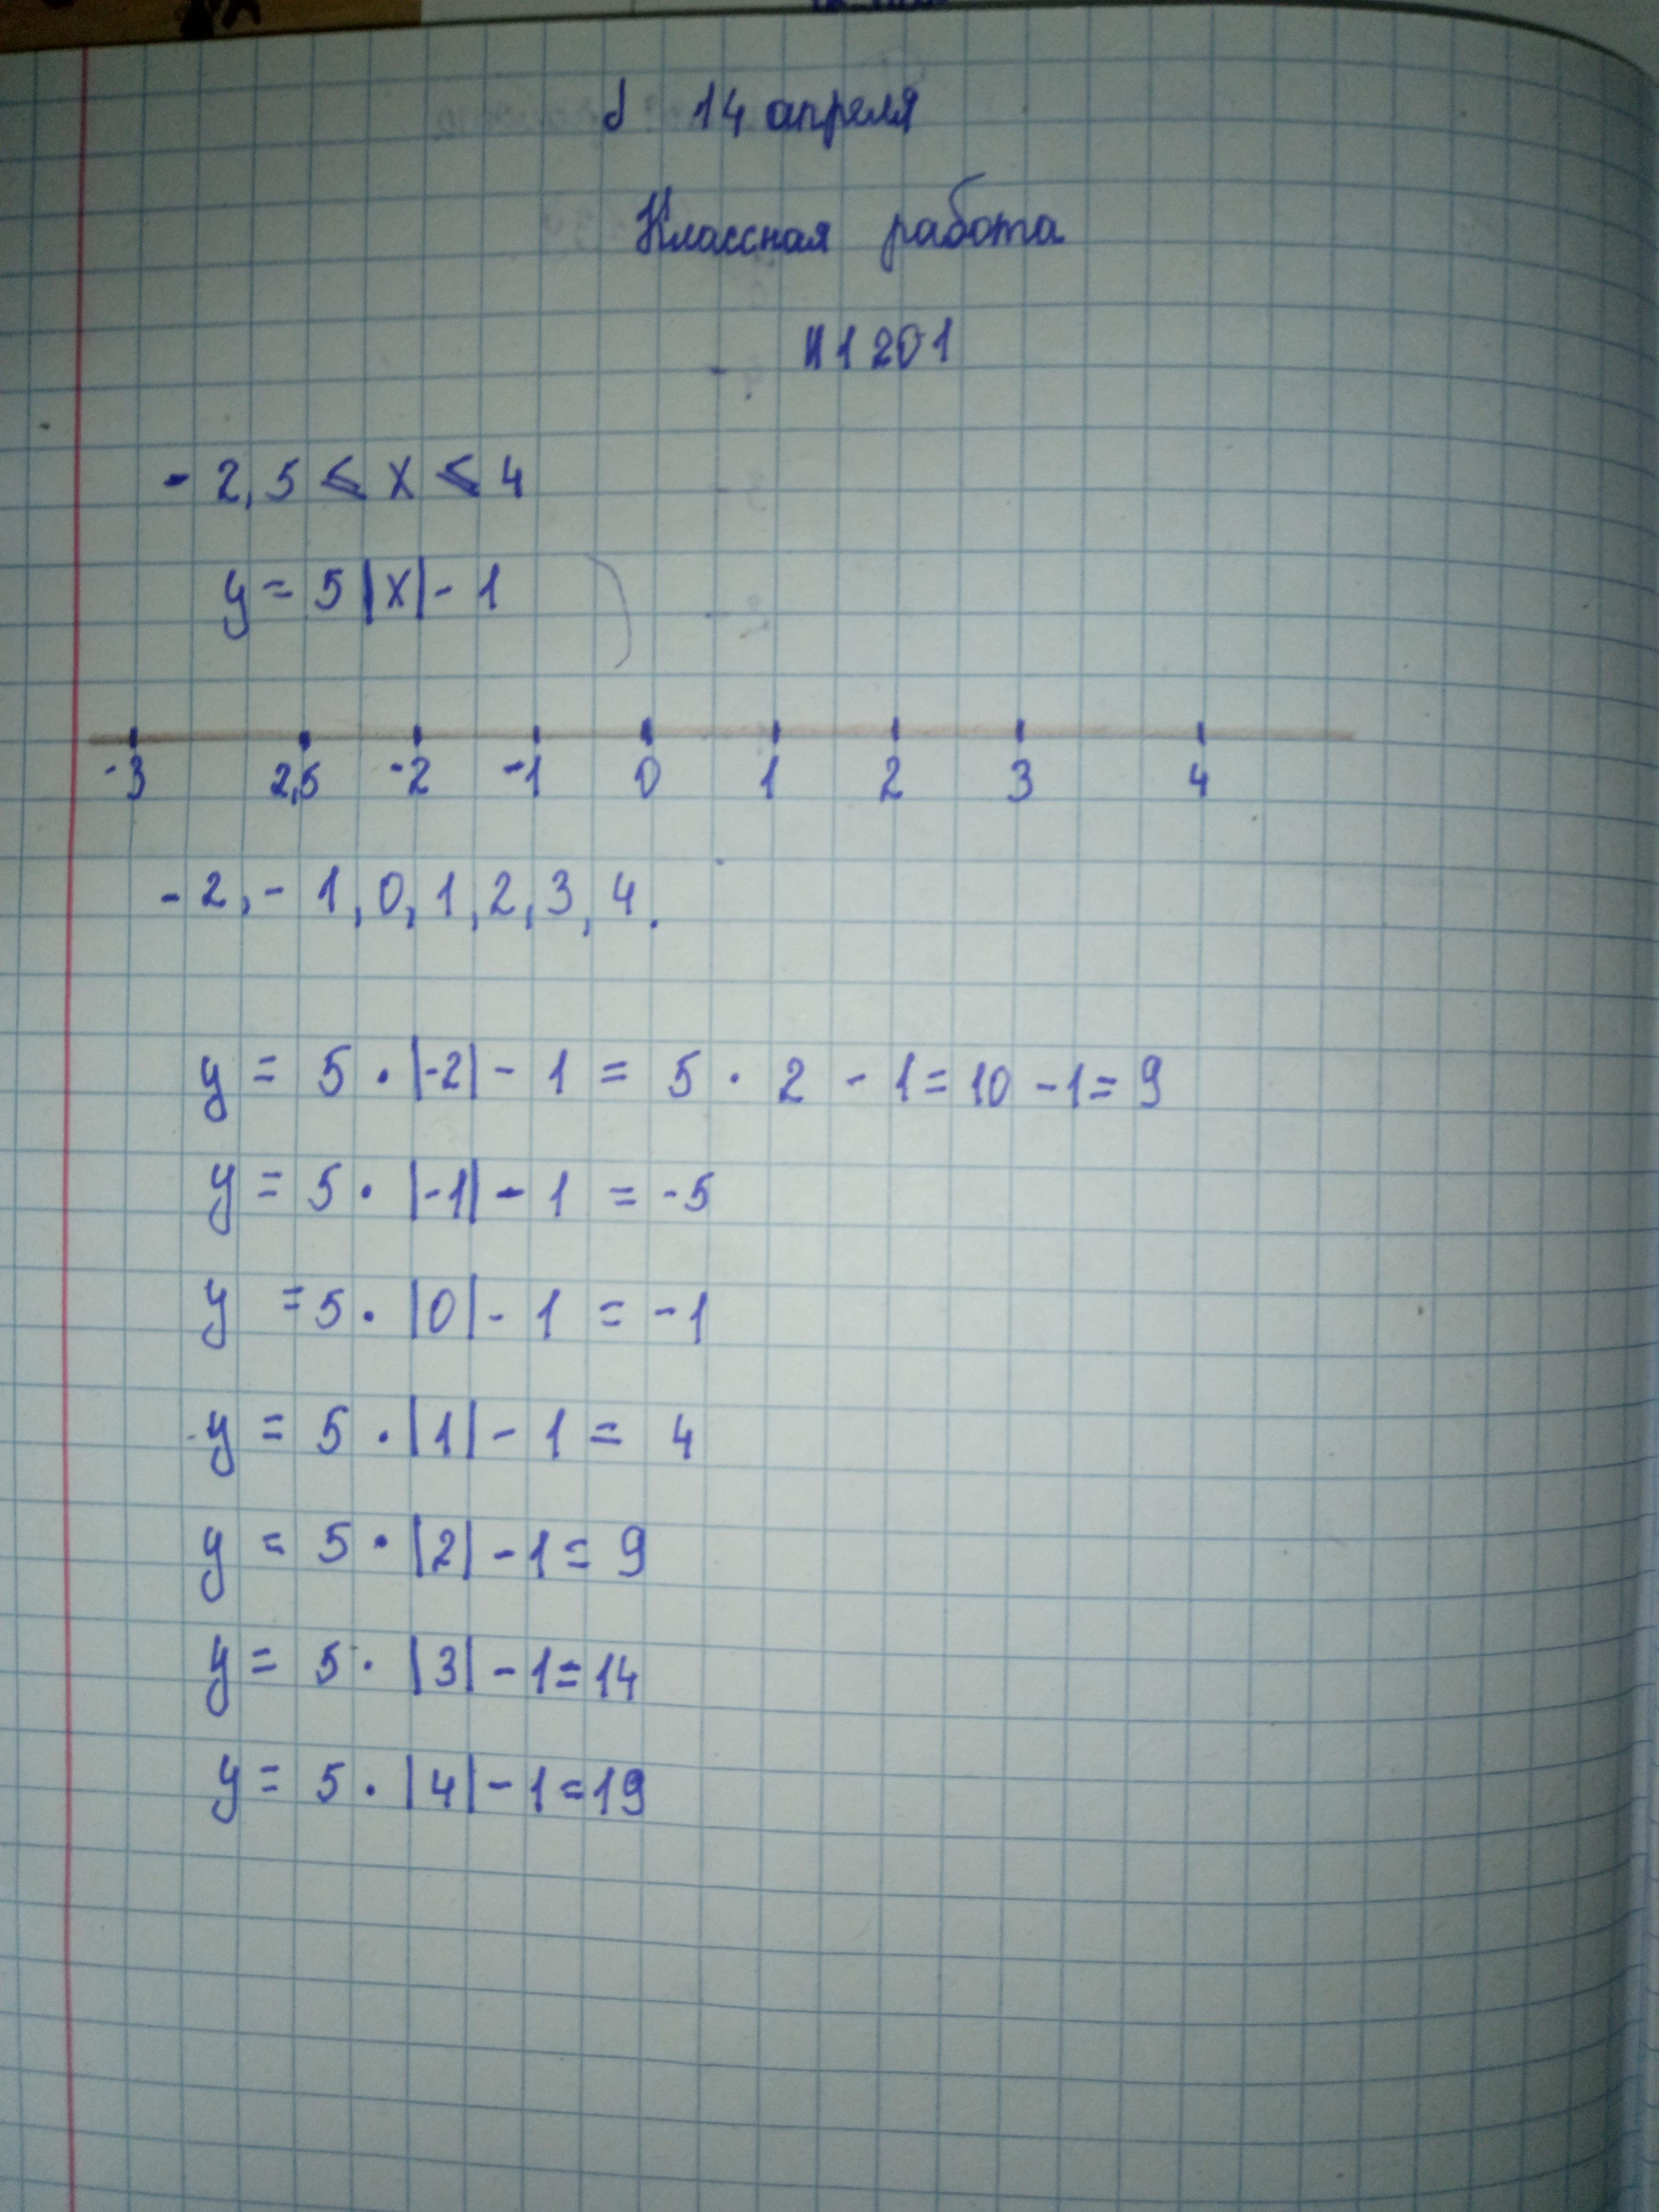 14 апреля
Классная работа
N1201
- 2,5 ≤ x ≤ 4
y = 5|x| - 1
-3 2,5 -2 -1 0 1 2 3 4
- 2, - 1, 0, 1, 2, 3, 4.
y = 5 · |-2| - 1 = 5 · 2 - 1 = 10 - 1 = 9
y = 5 · |-1| - 1 = -5
y = 5 · |0| - 1 = -1
y = 5 · |1| - 1 = 4
y = 5 · |2| - 1 = 9
y = 5 · |3| - 1 = 14
y = 5 · |4| - 1 = 19